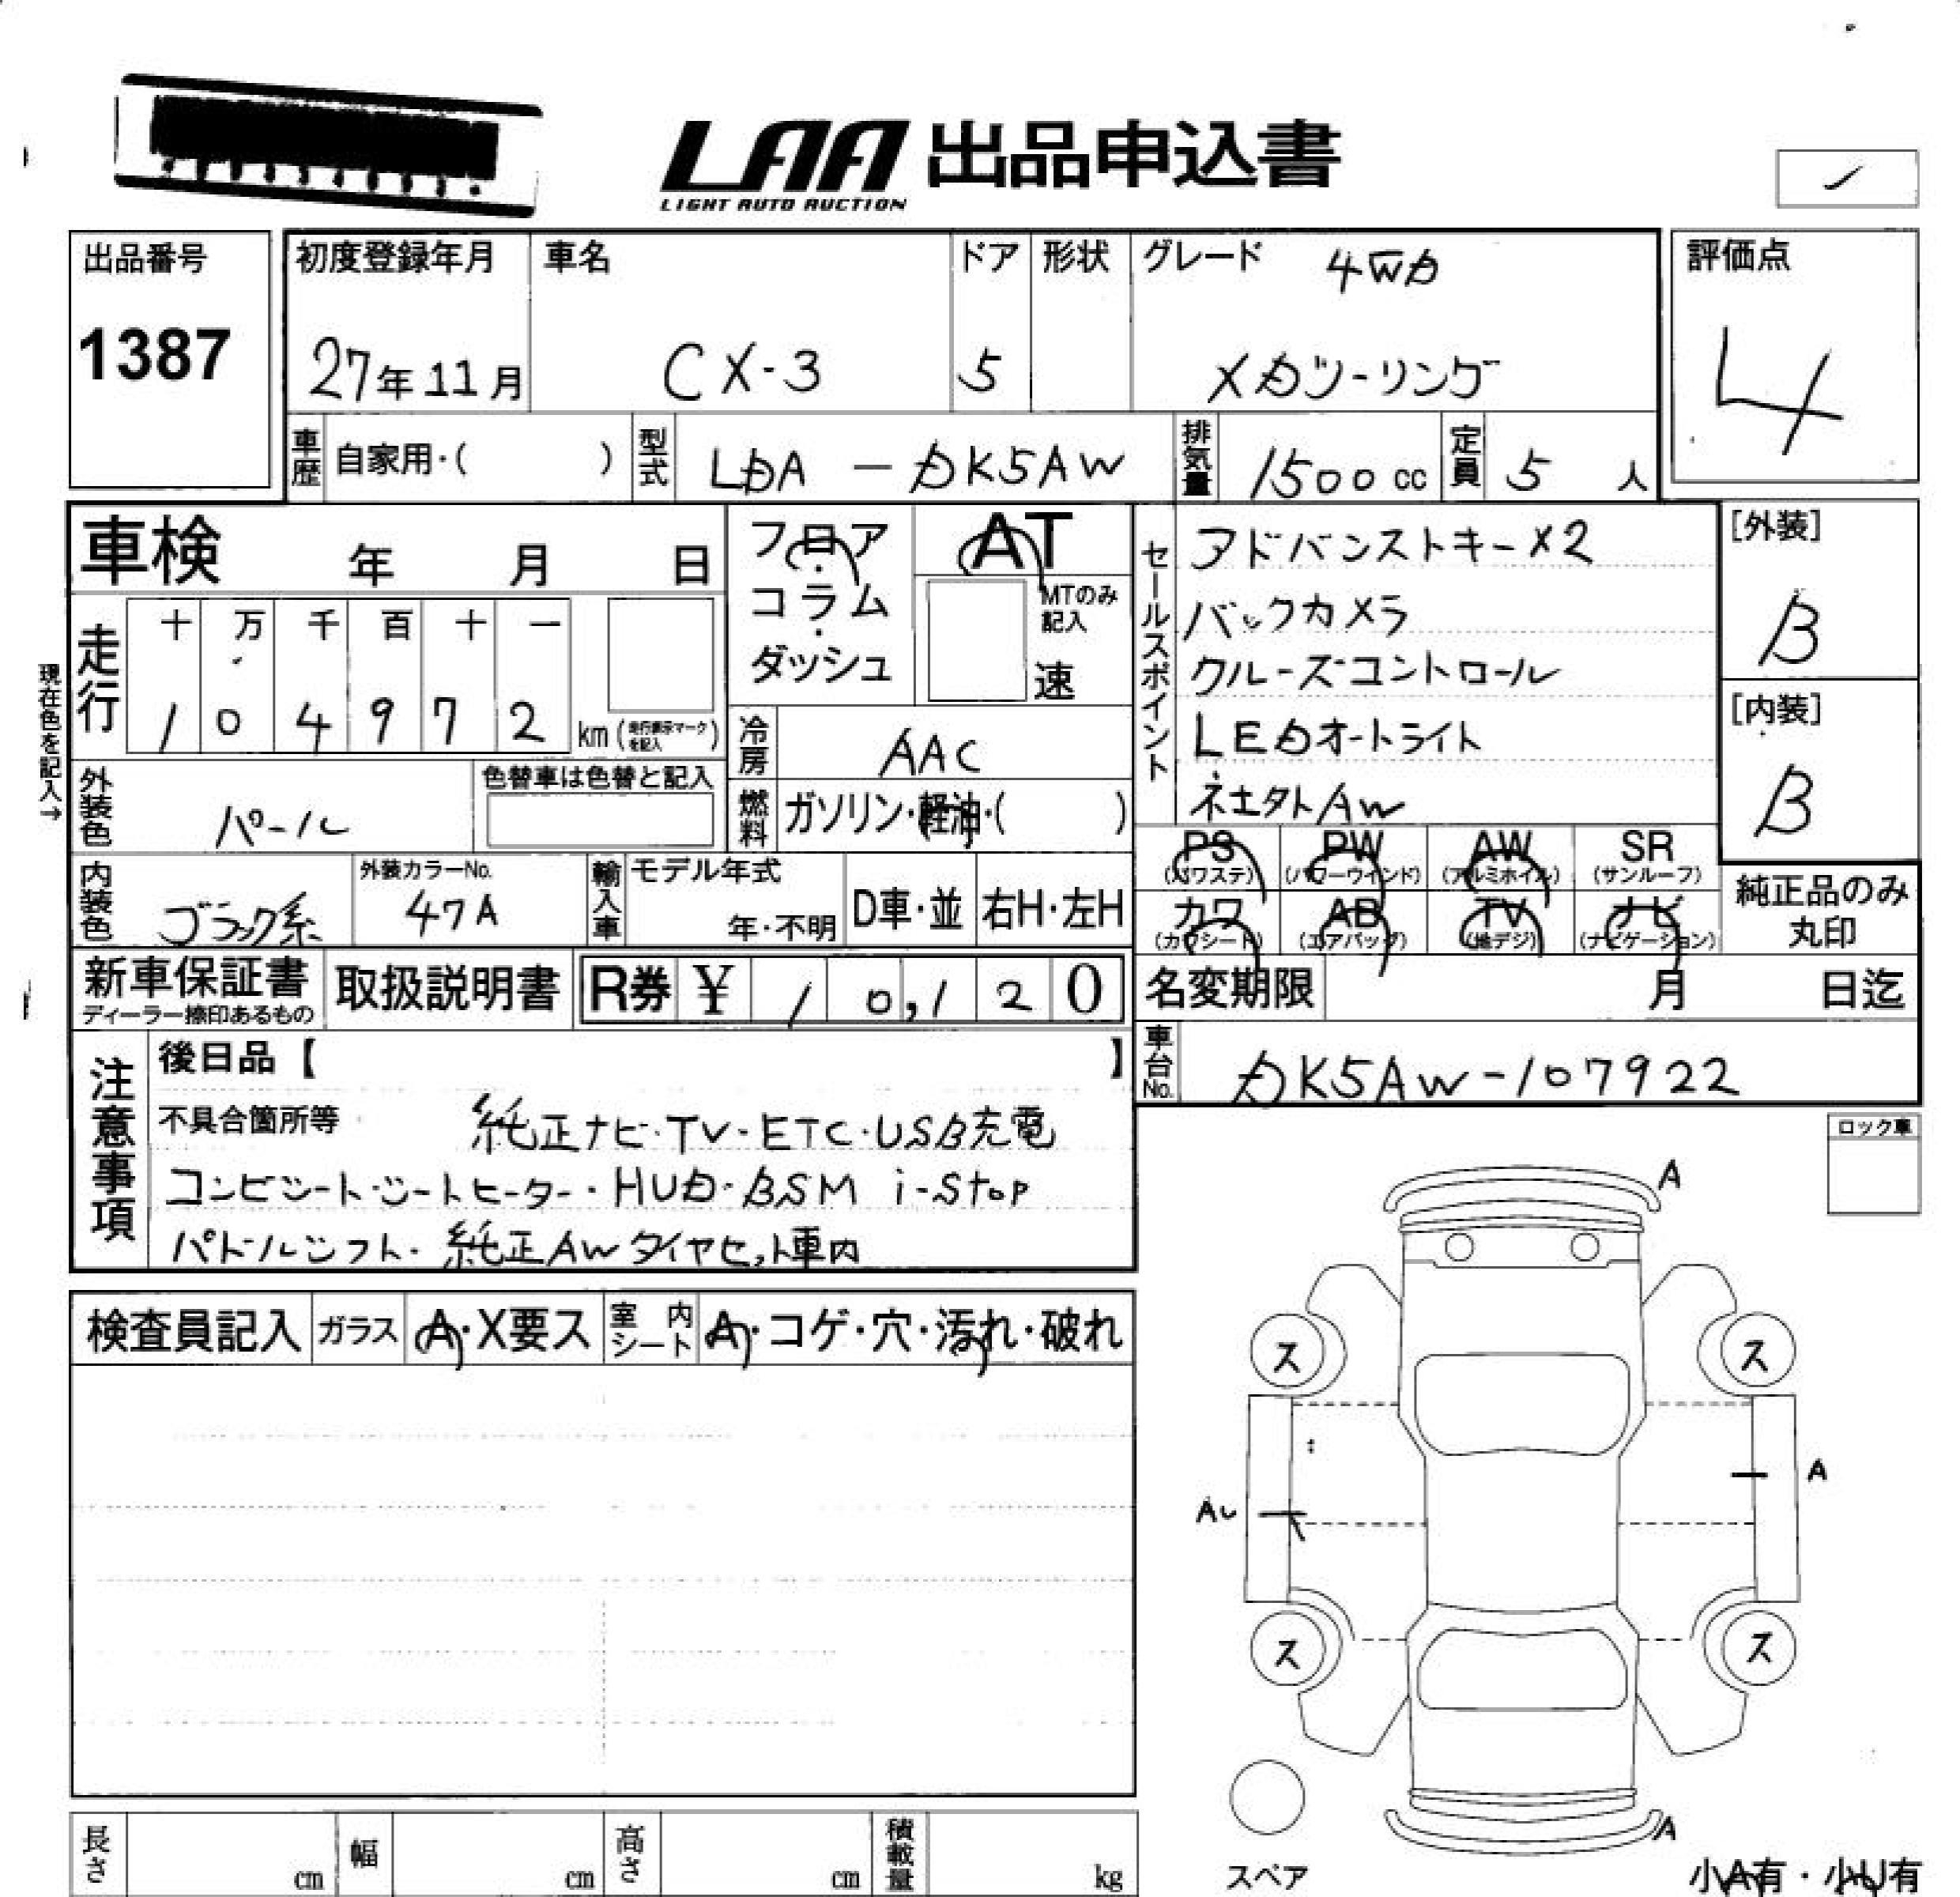 LAA 出品申込書
LIGHT AUTO AUCTION
出品番号
1387
初度登録年月
27年11月
車名
CX-3
ドア
5
形状
グレード 4WD
XDツーリング
評価点
4
車歴 自家用・( )
型式 LDA-DK5AW
排気量 1500cc
定員 5人
車検 年 月 日
フロア・コラム・ダッシュ
AT
MTのみ記入
速
セールスポイント
アドバンストキーX2
バックカメラ
クルーズコントロール
LEDオートライト
AW
[外装]
B
[内装]
B
現在色を記入→
走行
十 万 千 百 十 一
1 0 4 9 7 2 km
(走行表示マークを記入)
冷房 AAC
燃料 ガソリン・軽油・( )
外装色 パール
色替車は色替と記入
内装色 ブラック系
外装カラーNo.
47A
輸入車
モデル年式
年・不明
D車・並
右H・左H
PS
(パワステ)
PW
(パワーウインド)
AW
(アルミホイル)
SR
(サンルーフ)
カワ
(カワシート)
AB
(エアバッグ)
TV
(地デジ)
ナビ
(ナビゲーション)
純正品のみ
丸印
新車保証書
ディーラー捺印あるもの
取扱説明書
R券 ¥ 10,120
名変期限 月 日迄
車台No. DK5AW-107922
注意事項
後日品【 】
不具合箇所等 純正ナビ・TV・ETC・USB充電
コンビシート・シートヒーター・HUD・BSM i-stop
パドルシフト・純正AWタイヤセット車内
ロック車
検査員記入
ガラス A・X要ス
室内シート A・コゲ・穴・汚れ・破れ
A
ス ス
A
AU
ス ス
A
スペア
小A有・小U有
長さ cm
幅 cm
高さ cm
積載量 kg